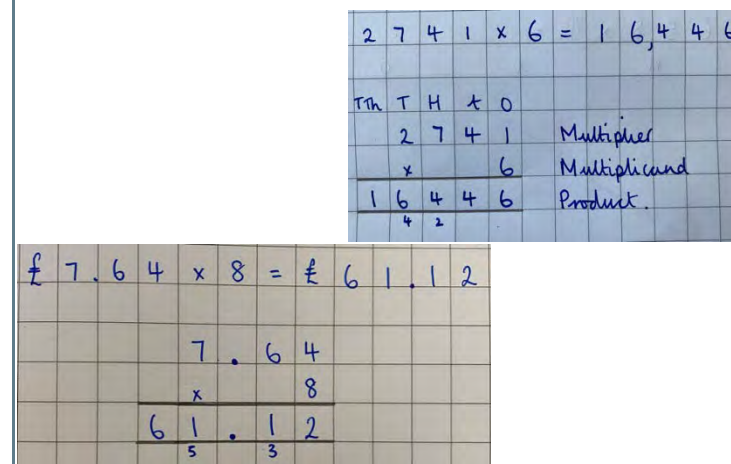 2 7 4 1 x 6 = 1 6,4 4 6
TTh T H t O
2 7 4 1 Multiplier
x 6 Multiplicand
1 6 4 4 6 Product.
4 2
£ 7 . 6 4 x 8 = £ 6 1 . 1 2
7 . 6 4
x 8
6 1 . 1 2
5 3